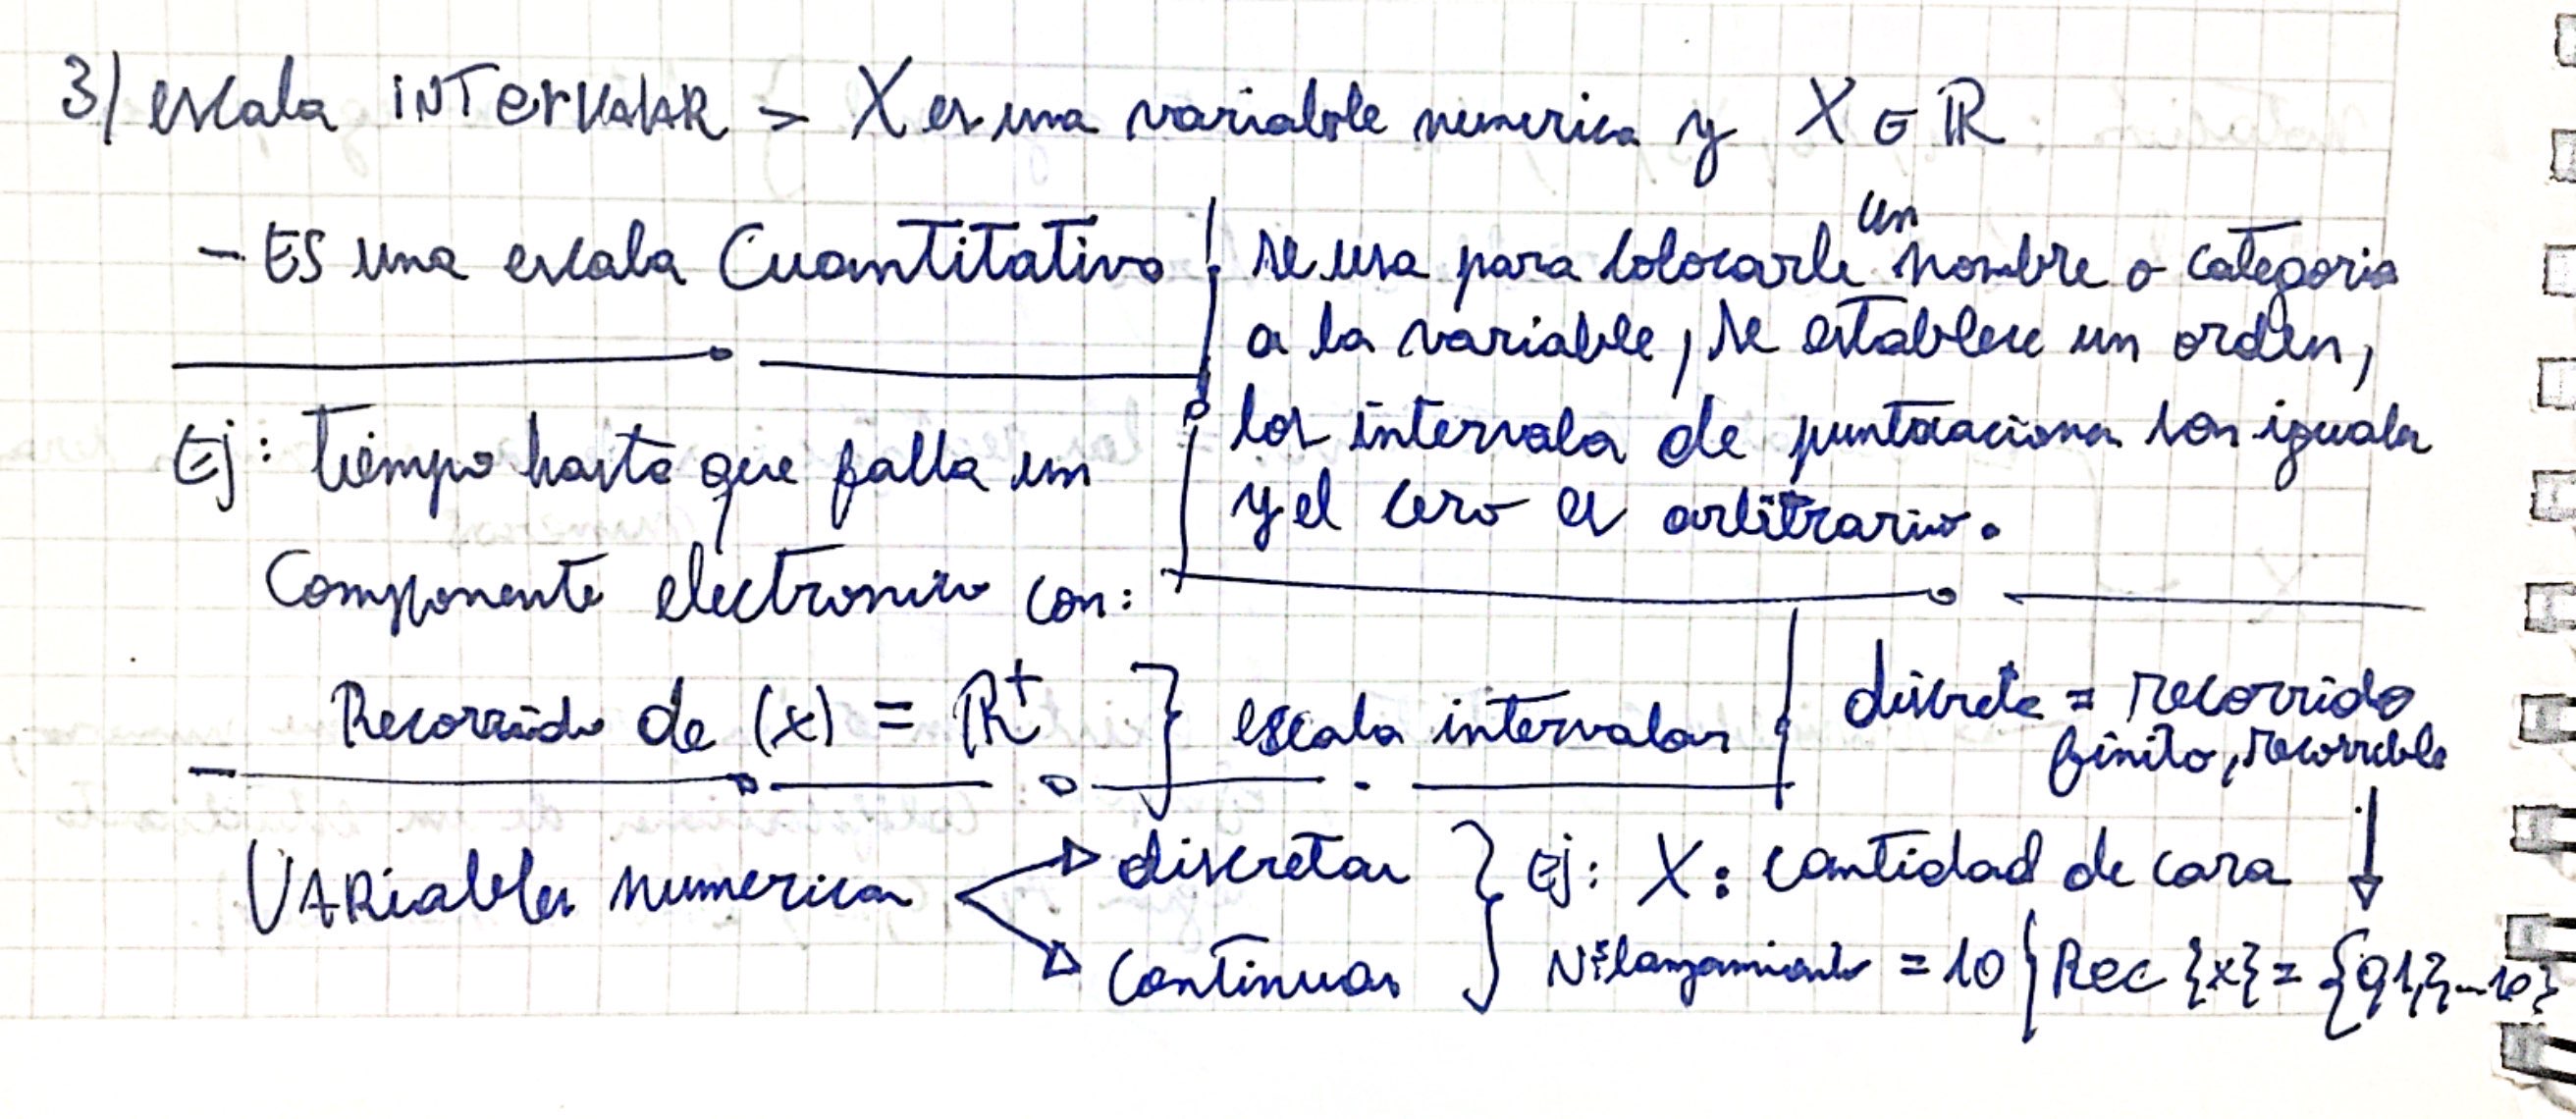 3) escala intervalar > X es una variable numerica y X ∈ ℝ
- Es una escala Cuantitativa
se usa para colocarle un nombre o categoria
a la variable, se establece un orden,
los intervalos de son iguales
y el cero es arbitrario.
Ej: tiempo hasta que falla un
Componente electronico con:
Recorrido de (x) = ℝ⁺ } escala intervalar
discreta = recorrido
finito,
Variables numericas
discretas
continuas
Ej: X: cantidad de cara
N° lanzamiento = 10
Rec {x} = {0,1,2,...10}